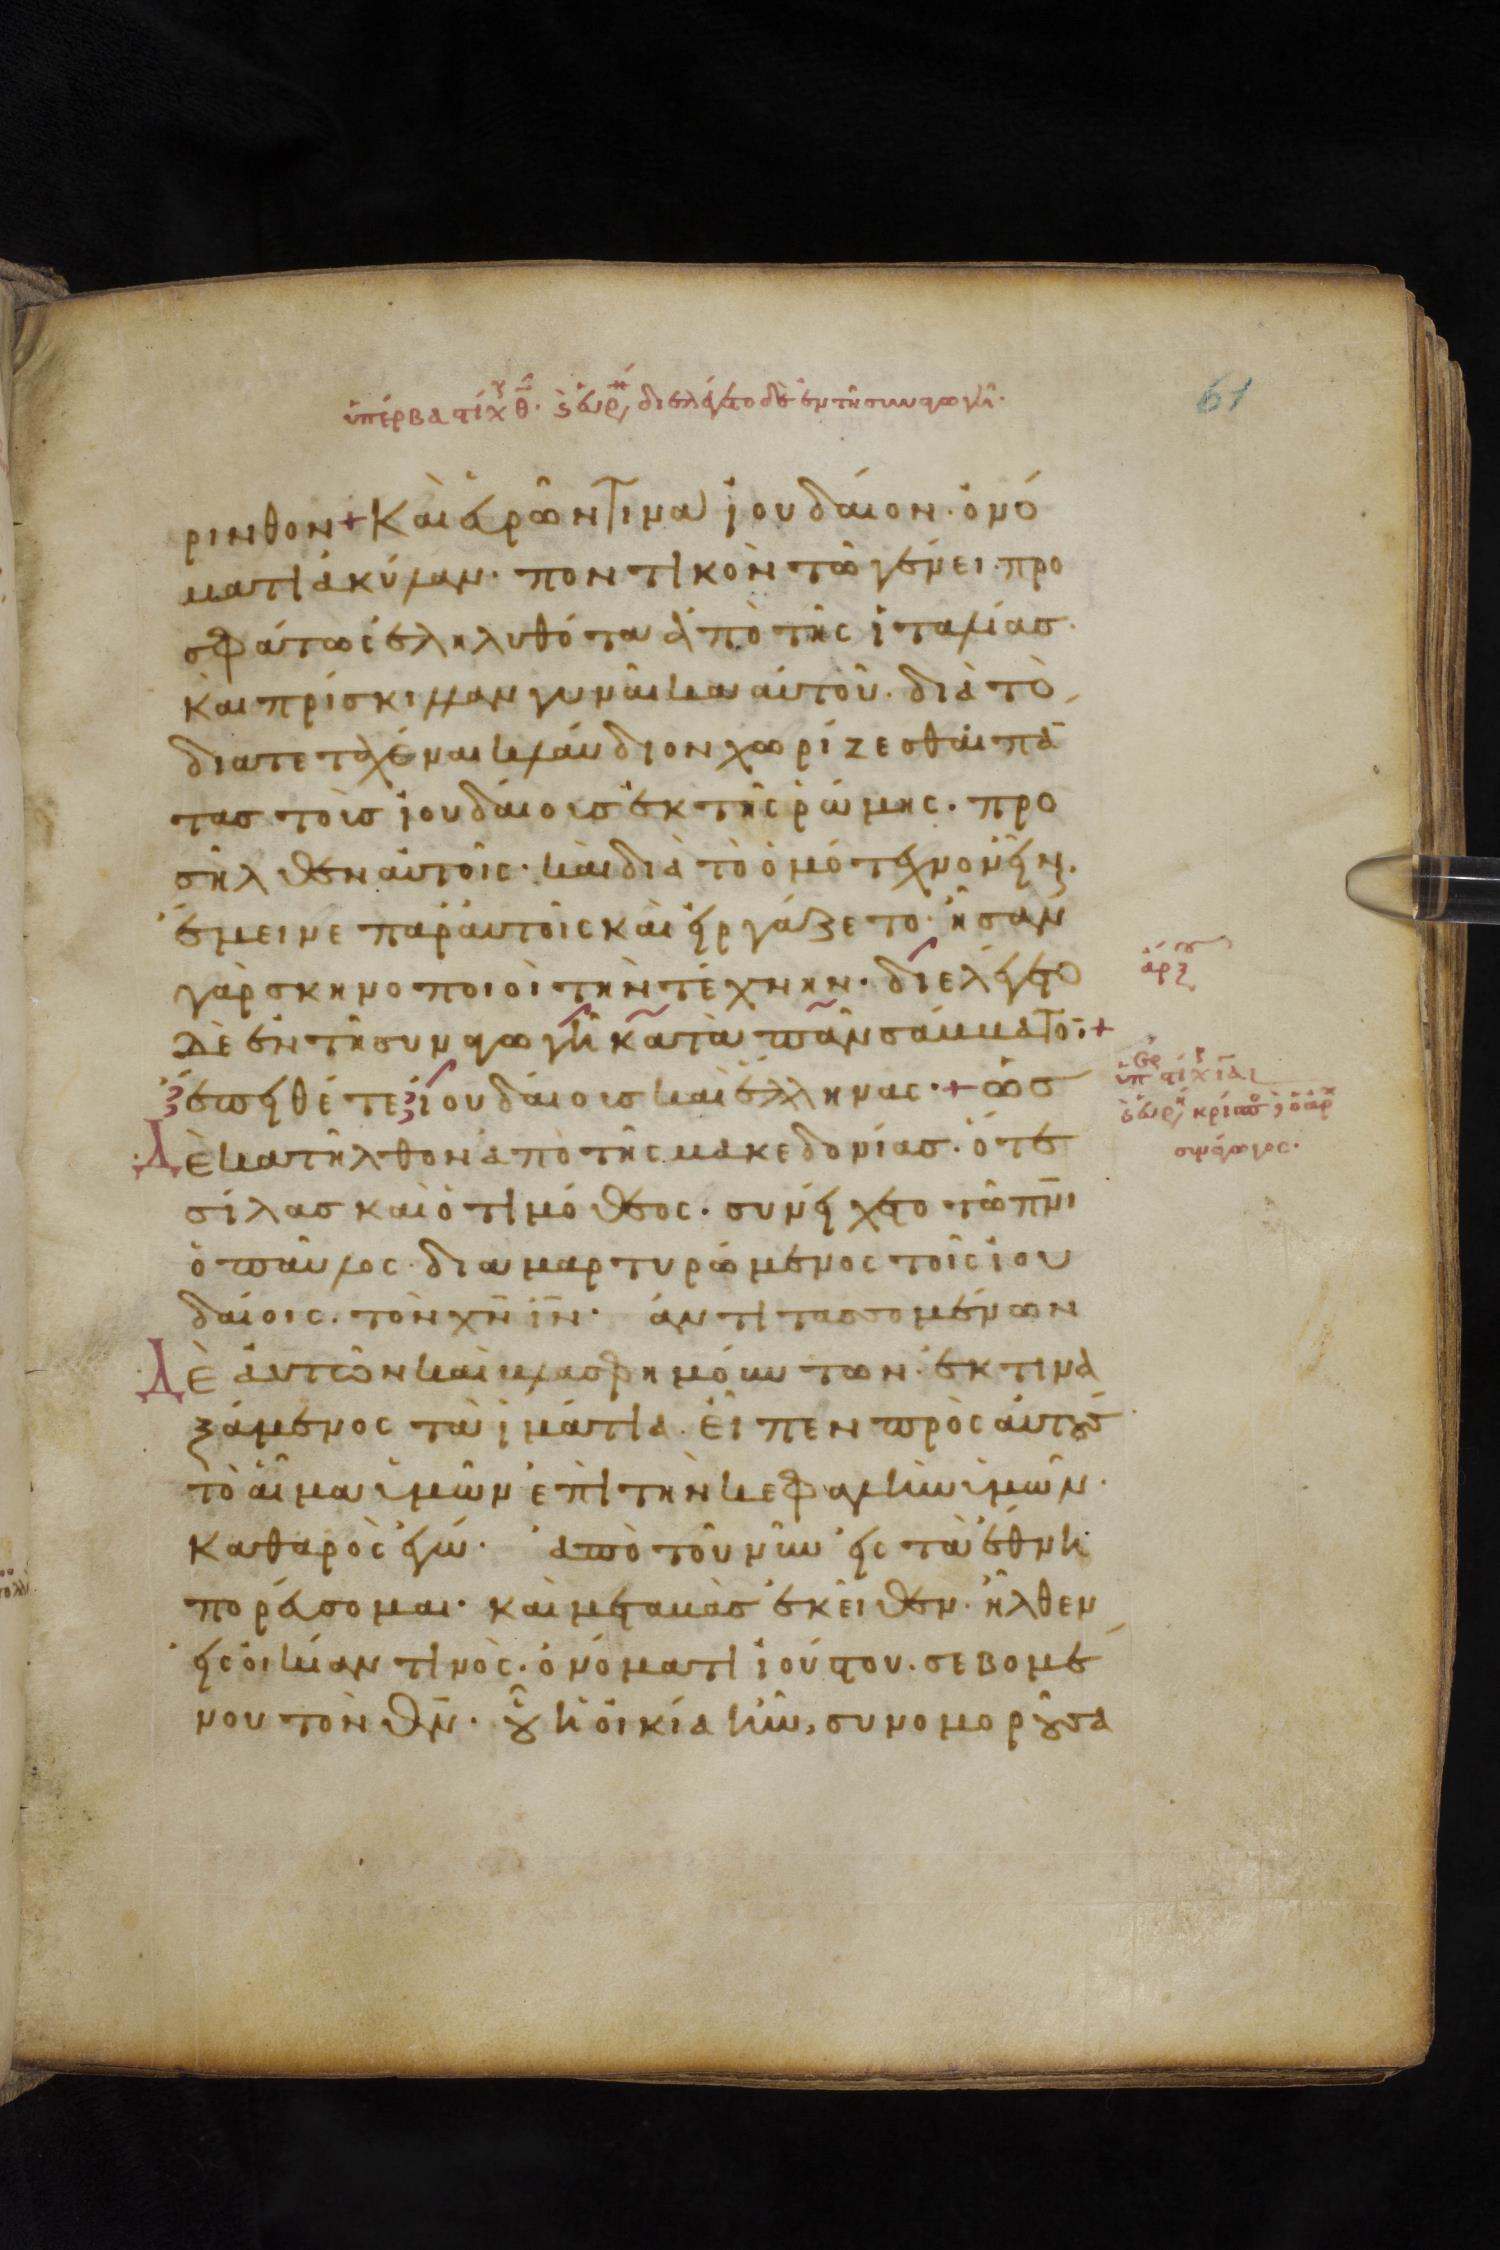 61
ρινθον + Καὶ εὑρῶν τινα ἰουδαῖον · ὀνό
ματι ἀκύλαν · ποντικὸν τῶ γένει · προ
σφάτως ἐληλυθότα ἀπὸ τῆς ἰταλίας ·
καὶ πρίσκιλλαν γυναῖκα αὐτοῦ · διὰ τὸ
διατεταχέναι κλαύδιον χωρίζεσθαι πά
τας τοὺς ἰουδαίους ἐκ τῆς ῥώμης · προ
σῆλθεν αὐτοῖς · καὶ διὰ τὸ ὁμότεχνον εἶν,
ἔμεινε παρ' αὐτοῖς καὶ εἰργάζετο · ἦσαν
γὰρ σκηνοποιοὶ τὴν τέχνην · διελέγετο
δὲ ἐν τῆ συναγωγῆ κατὰ πᾶν σάββατον · +
ἔπειθέ τε ἰουδαίους καὶ ἕλληνας · + ὡς
Δὲ κατῆλθον ἀπὸ τῆς μακεδονίας · ὅτε
σίλας καὶ ὁ τιμόθεος · συνείχετο τῶ πν̅ι
ὁ παῦλος · διαμαρτυρόμενος τοῖς ἰου
δαίοις · τὸν χν̅ ιν̅ · ἀντιτασσομένων
Δὲ αὐτῶν καὶ βλασφημούντων · ἐκτινα
ξάμενος τὰ ἱμάτια · εἶπεν πρὸς αὐτούς
τὸ αἷμα ὑμῶν ἐπὶ τὴν κεφαλὴν ὑμῶν ·
καθαρὸς ἐγώ · ἀπὸ τοῦ νῦν εἰς τὰ ἔθνη
πορεύσομαι · καὶ μεταβὰς ἐκεῖθεν · ἦλθεν
εἰς οἰκίαν τινὸς · ὀνόματι ἰούστου · σεβομέ
νου τὸν θν̅ · οὗ ἡ οἰκία ἦν, συνομοροῦσα